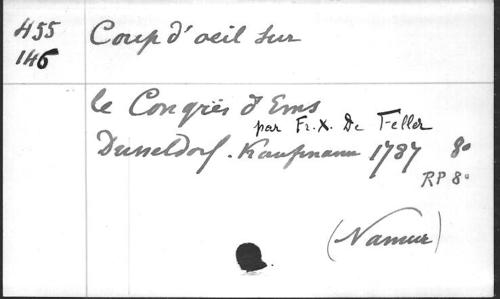 455
146
Coup d'oeil sur
le Congrès d'Ems
par Fr. X. De Feller
Dusseldorf. Kaufmann 1787 8°
RP 8°
(Namur)